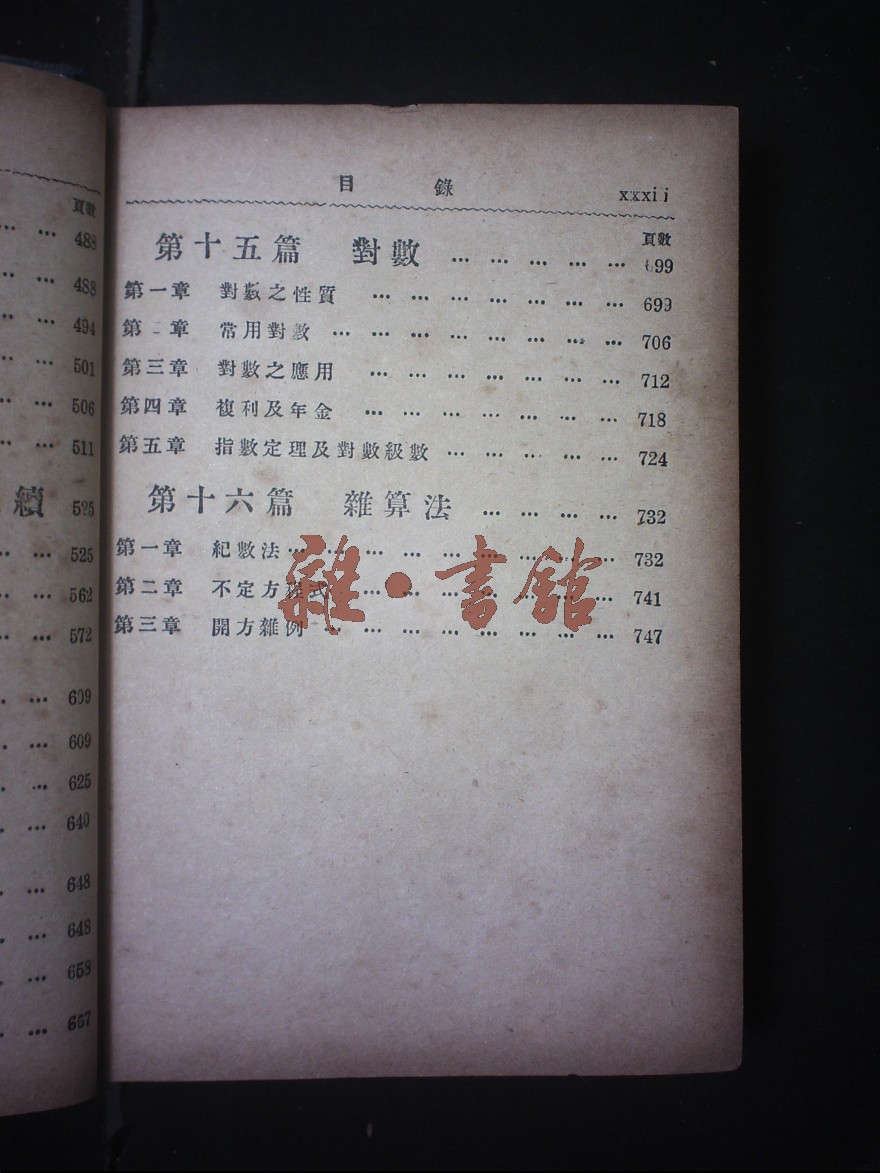 頁數
488
488
494
501
506
511
續 525
525
562
572
609
609
625
640
648
648
658
667
目錄
頁數
第十五篇 對數 … … … … … 699
第一章 對數之性質 … … … … … … … 699
第二章 常用對數 … … … … … … … … 706
第三章 對數之應用 … … … … … … … 712
第四章 複利及年金 … … … … … … … 718
第五章 指數定理及對數級數 … … … … … 724
第十六篇 雜算法 … … … … 732
第一章 紀數法 … … … … … … … … … 732
第二章 不定方程式 … … … … … … … 741
第三章 開方雜例 … … … … … … … … 747
雜·書館